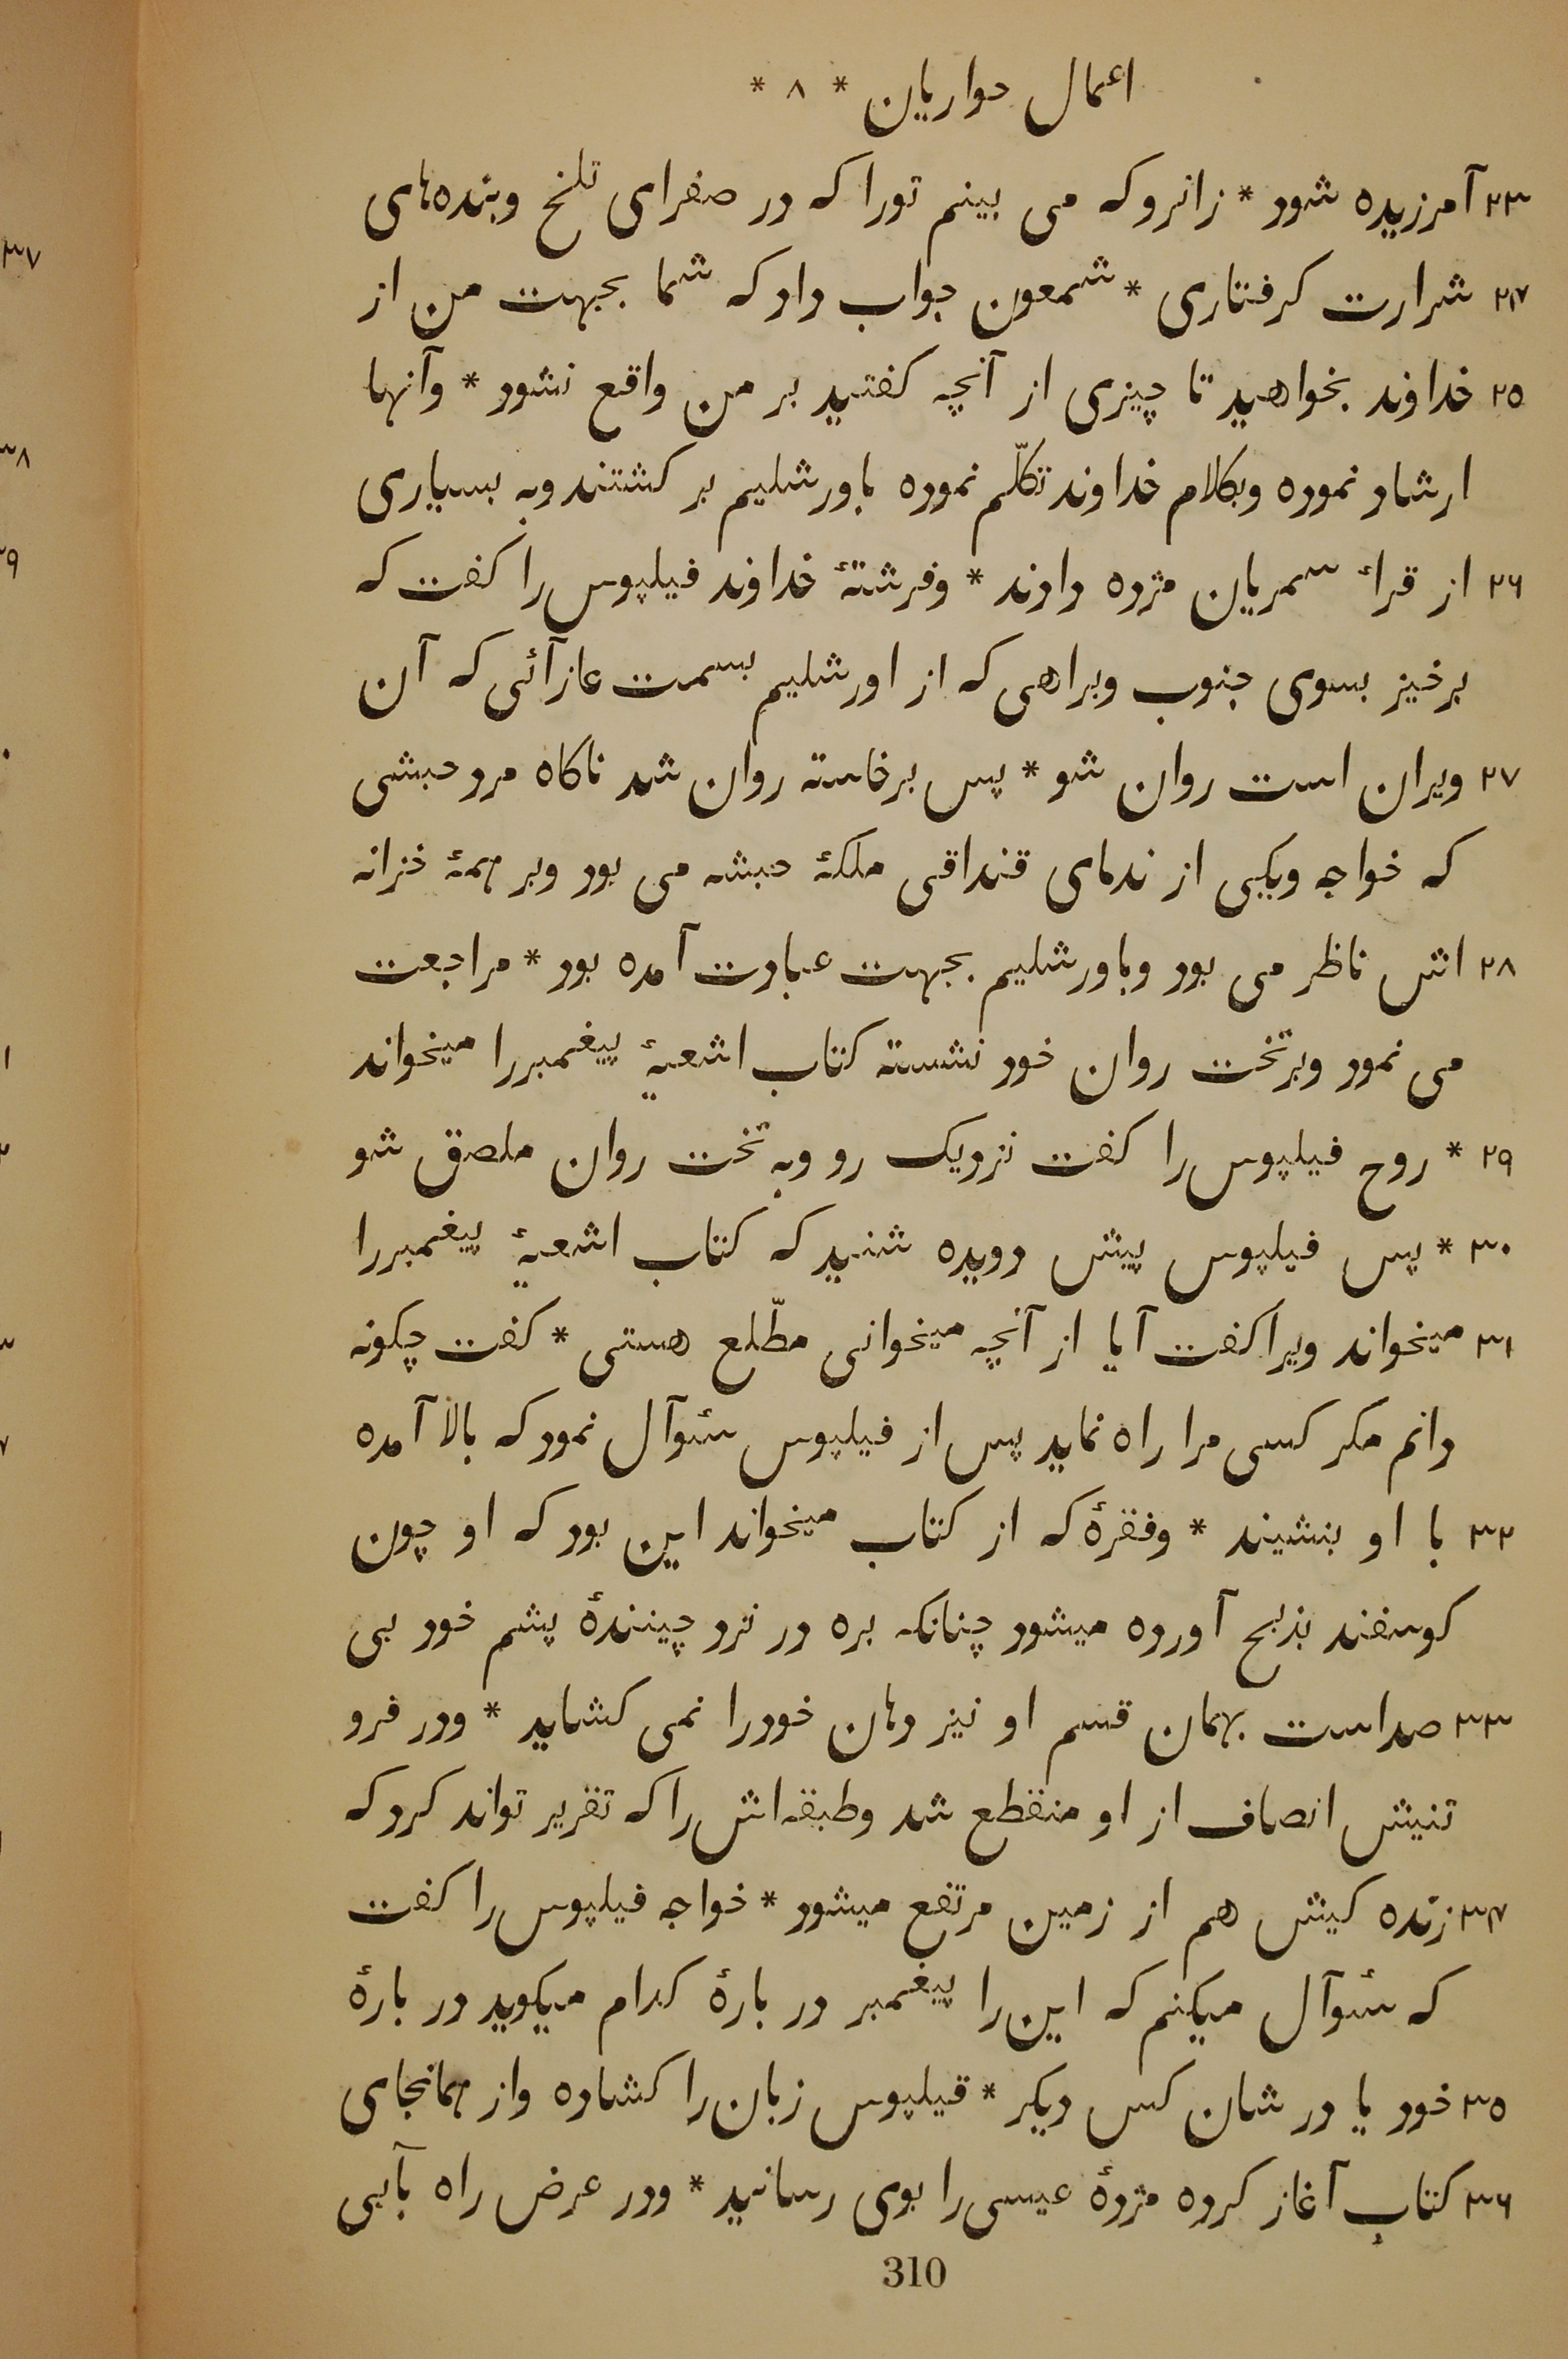 اعمال حواریان * ٨ *
٢٣ آمرزیده شود * زانروکه می بینم تورا که در صفرای تلخ وبندهای
٢۴ شرارت کرفتاری * شمعون جواب داد که شما بجهت من از
٢٥ خداوند بخواهید تا چیزی از آنچه کفتید بر من واقع نشود * وآنها
ارشاد نموده وبکلام خداوند تکلّم نموده باورشلیم بر کشتند وبه بسیاری
٢٦ از قراﺀ سمریان مژده دادند * وفرشتهٔ خداوند فیلپوس را کفت که
برخیز بسوی جنوب وبراهی که از اورشلیم بسمت عازآئی که آن
٢٧ ویران است روان شو * پس برخاسته روان شد ناکاه مرد حبشی
که خواجه ویکی از ندمای قنداقی ملکهٔ حبشه می بود وبر همهٔ خزانه
٢٨ اش ناظر می بود وباورشلیم بجهت عبادت آمده بود * مراجعت
می نمود وبر تخت روان خود نشسته کتاب اشعیهٔ پیغمبررا میخواند
٢٩ * روح فیلپوس را کفت نزدیک رو وبه تخت روان ملصق شو
٣٠ * پس فیلپوس پیش دویده شنید که کتاب اشعیهٔ پیغمبررا
٣١ میخواند ویرا کفت آیا از آنچه میخوانی مطّلع هستی * کفت چکونه
دانم مکر کسی مرا راه نماید پس از فیلپوس سئوآل نمود که بالا آمده
٣٢ با او بنشیند * وفقرهٔ که از کتاب میخواند این بود که او چون
کوسفند بذبح آورده میشود چنانکه بره در نزد چینندهٔ پشم خود بی
٣٣ صداست بهمان قسم او نیز دهان خودرا نمی کشاید * ودر فرو
تنیش انصاف از او منقطع شد وطبقه‌اش را که تقریر تواند کرد که
٣۴ زنده کیش هم از زمین مرتفع میشود * خواجه فیلپوس را کفت
که سئوآل میکنم که این را پیغمبر در بارهٔ کدام میکوید در بارهٔ
٣٥ خود یا در شان کس دیکر * فیلپوس زبان را کشاده واز همانجای
٣٦ کتاب آغاز کرده مژدهٔ عیسی را بوی رسانید * ودر عرض راه بآبی
310
٣٧
٣٨
٣٩